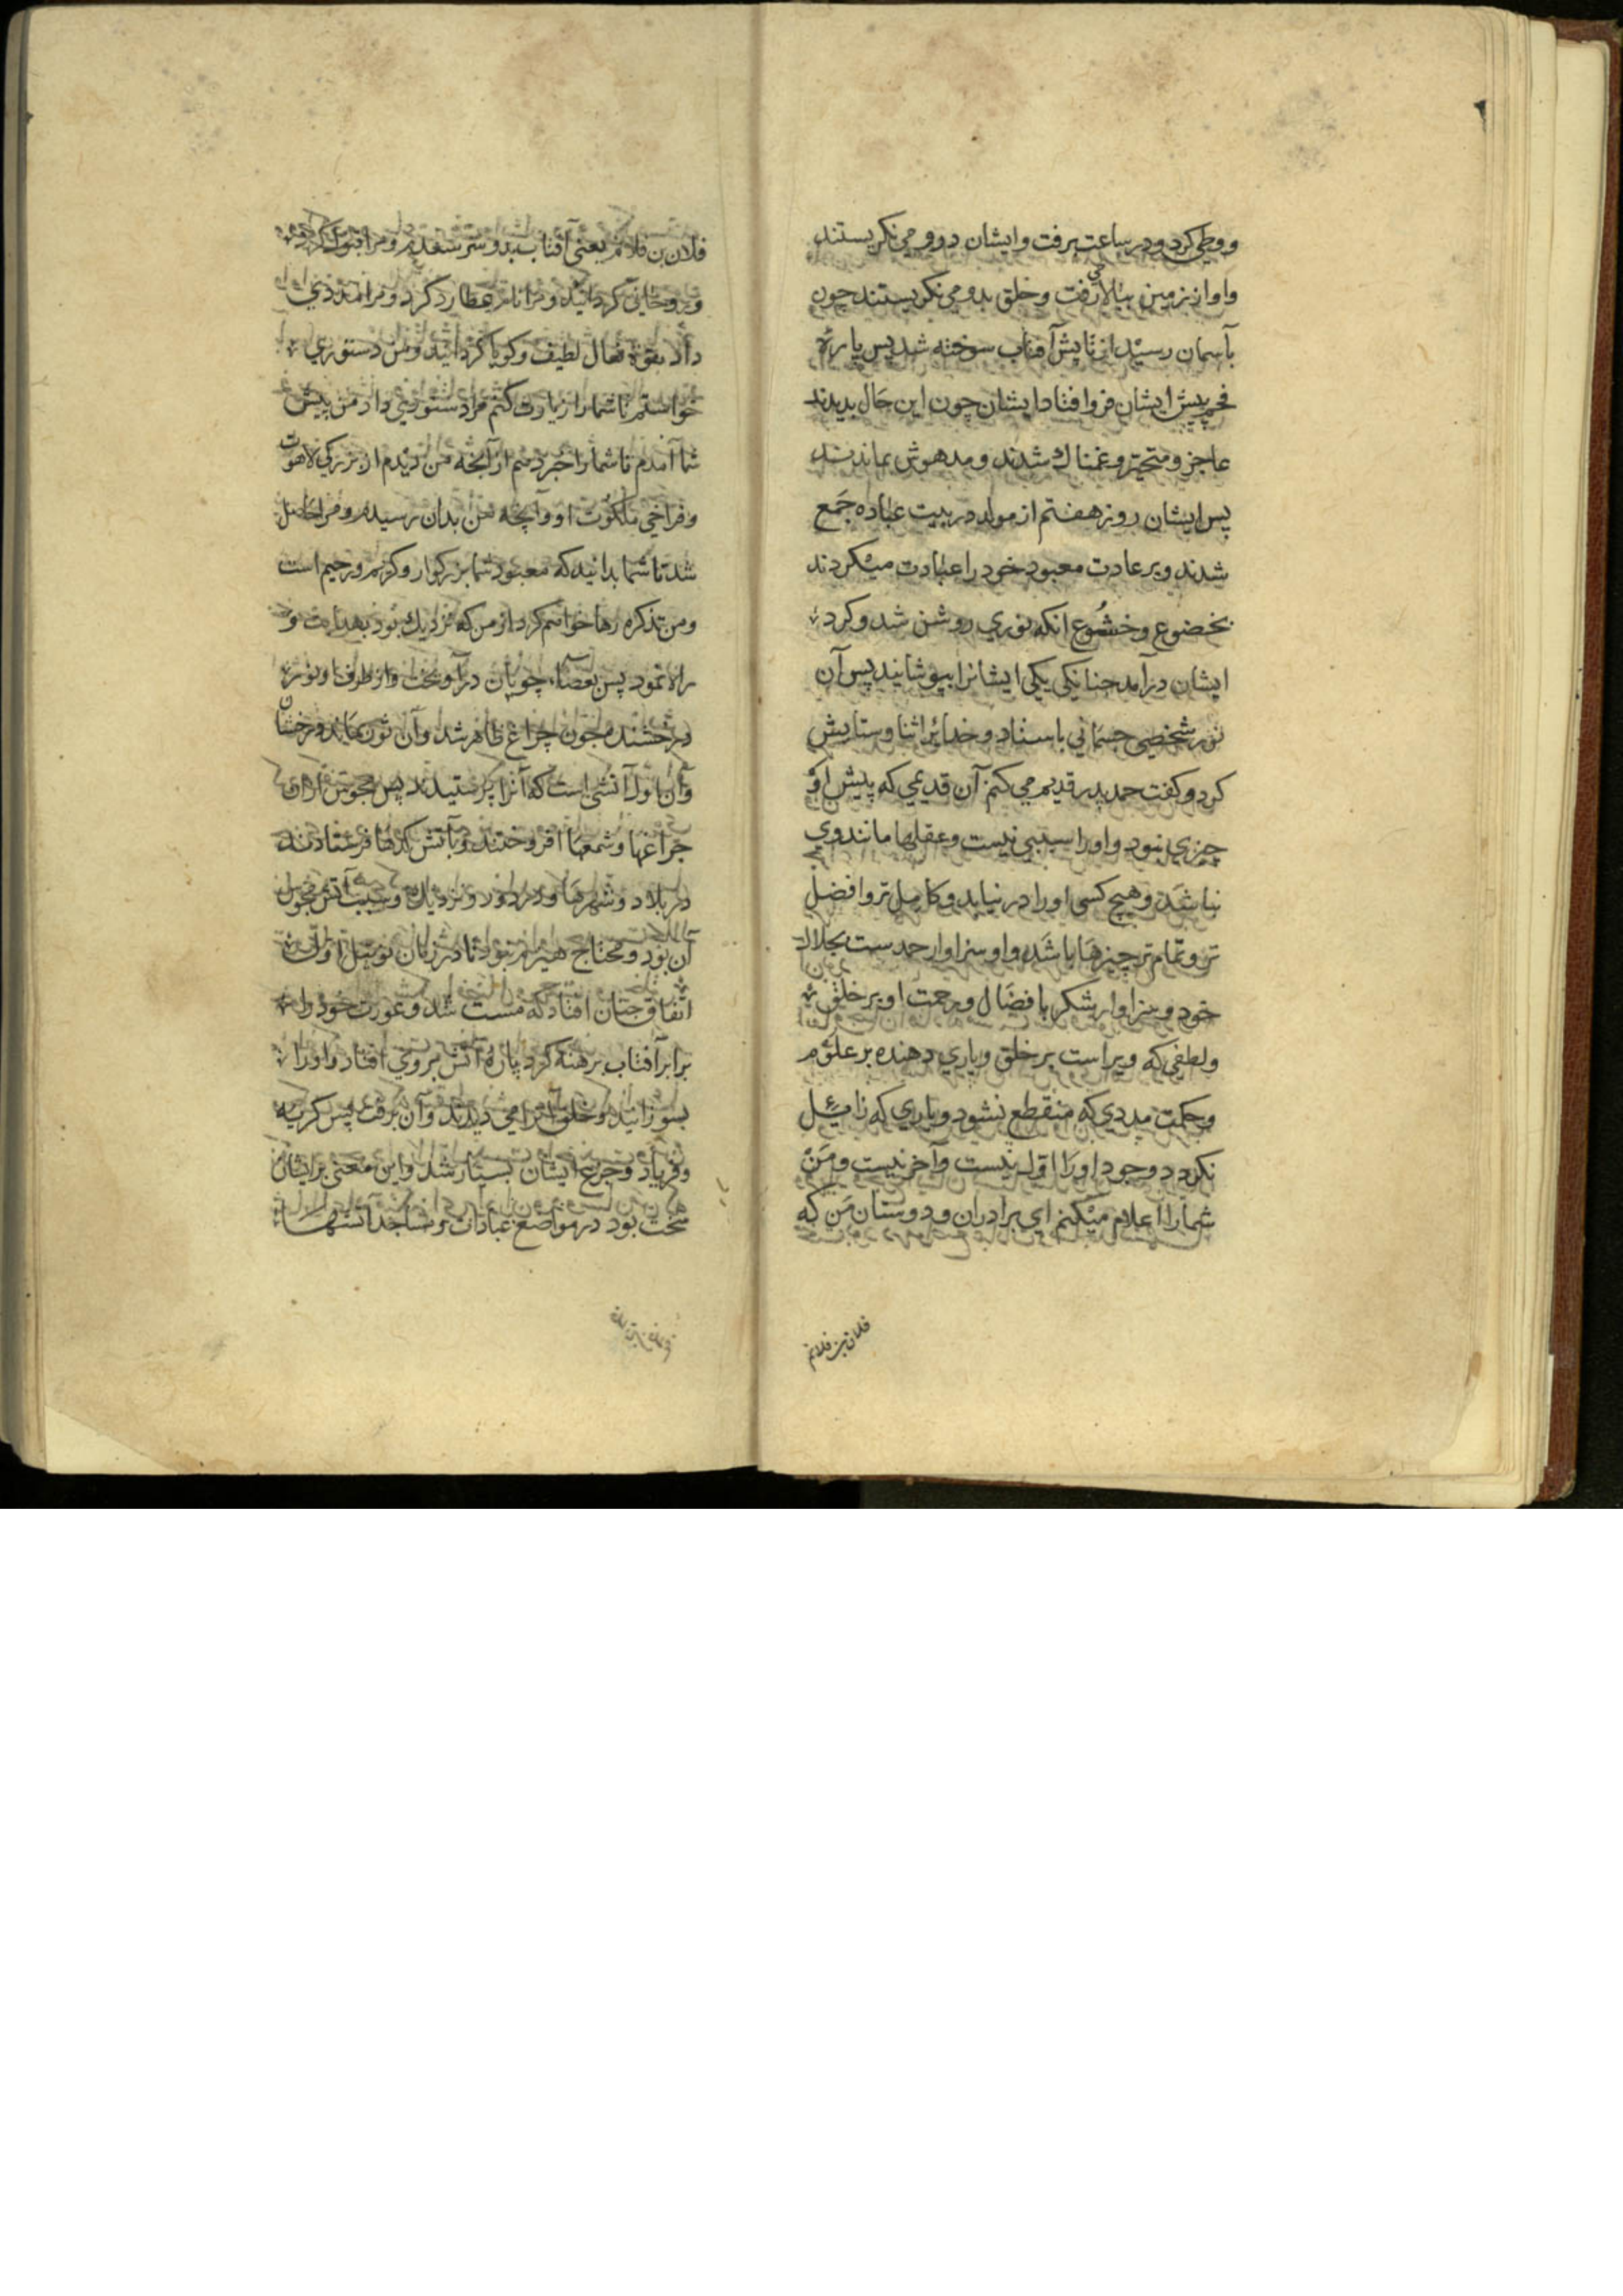 ووطی کرد و در ساعت برفت وایشان دروومی نکریستند
واواززمین ببالا می رفت وخلق بدومی نکریستند چون
بآسمان رسید از تابش آفتاب سوخته شد پس پاره
فحم پیش ایشان فروافتاد ایشان چون این حال بدیدند
عاجز و متحیر وغمناك شدند و مدهوش بماندند
پس ایشان روز هفتم از مولد در بیت عباده جمع
شدند وبر عادت معبود خود را عبادت میکردند
بخضوع وخشوع انکه نوری روشن شد وکرد
ایشان درآمد چنانکی یکی ایشانرا بپوشانید پس آن
نور شخصی جسمانی باستاد وخدایرا ثنا وستایش
کرد وکفت حمد پدر قدیم می کنم آن قدیمی که پیش از و
چیزی نبود واورا سببی نیست وعقلها مانند وی
نباشد وهیچ کسی اورا در نیابد وکامل تر وافضل
تر و تمام تر چیزها باشد واو سزاوار حمدست بجلال
خود و سزاوار شکر بافضال ورحمت او بر خلق
ولطفی که ویراست بر خلق ویاری دهنده بر علوم
وحکمت مددی که منقطع نشود ویاری که زایل
نکردد وجود اورا اول نیست وآخر نیست ومن
شمارا اعلام میکنم ای برادران و دوستان من که
فلان بن فلانم
فلان بن فلانم یعنی آفتاب بدو سر سفدم ومرا قبول کرد
وروحانی کردانید ومرا نام عطارد کرد ومرا مدد
داد بقوه فعال لطیف وکویا کردانید ومن دستوری
خواستم تا شمارا زیارت کنم مرا دستوری داد من پیش
شما آمدم تا شمارا خبر دهم از آنچه من دیدم از بزرکی لاهوت
وفراخی ملکوت او وآنچه من بدان رسیدم ومرا حاصل
شد تا شما بدانید که معبود شما بزرکوار وکریم ورحیم است
ومن تذکره رها خواهم کرد از من که نزدیك بود بهدایت و
راه نمود پس بعصاء چوپان درآویخت واز طرف او نوره
درخشنده چون چراغ ظاهر شد وآن نور بماند درخشان
وآن اول آتشی است که آنرا پرستیدند پس مجوس ازان
چراغها وشمعها افروختند وبآتش کدها فرستادند
در بلاد وشهرها ودر دور ونزدیك وسبب آتش مجوس
آن بود ومحتاج هیزم نبود تا در زمان نوبتی
اتفاق چنان افتاد که مست شد وعورت خود را
برابر آفتاب برهنه کرد پاره آتش بروی افتاد واورا
بسوزانید وخلق آنرا می دیدند وآن برفت پس کریه
وفریاد وجزع ایشان بسیار شد واین معنی بر ایشان
سخت بود در مواضع عبادات ومساجد آتشها